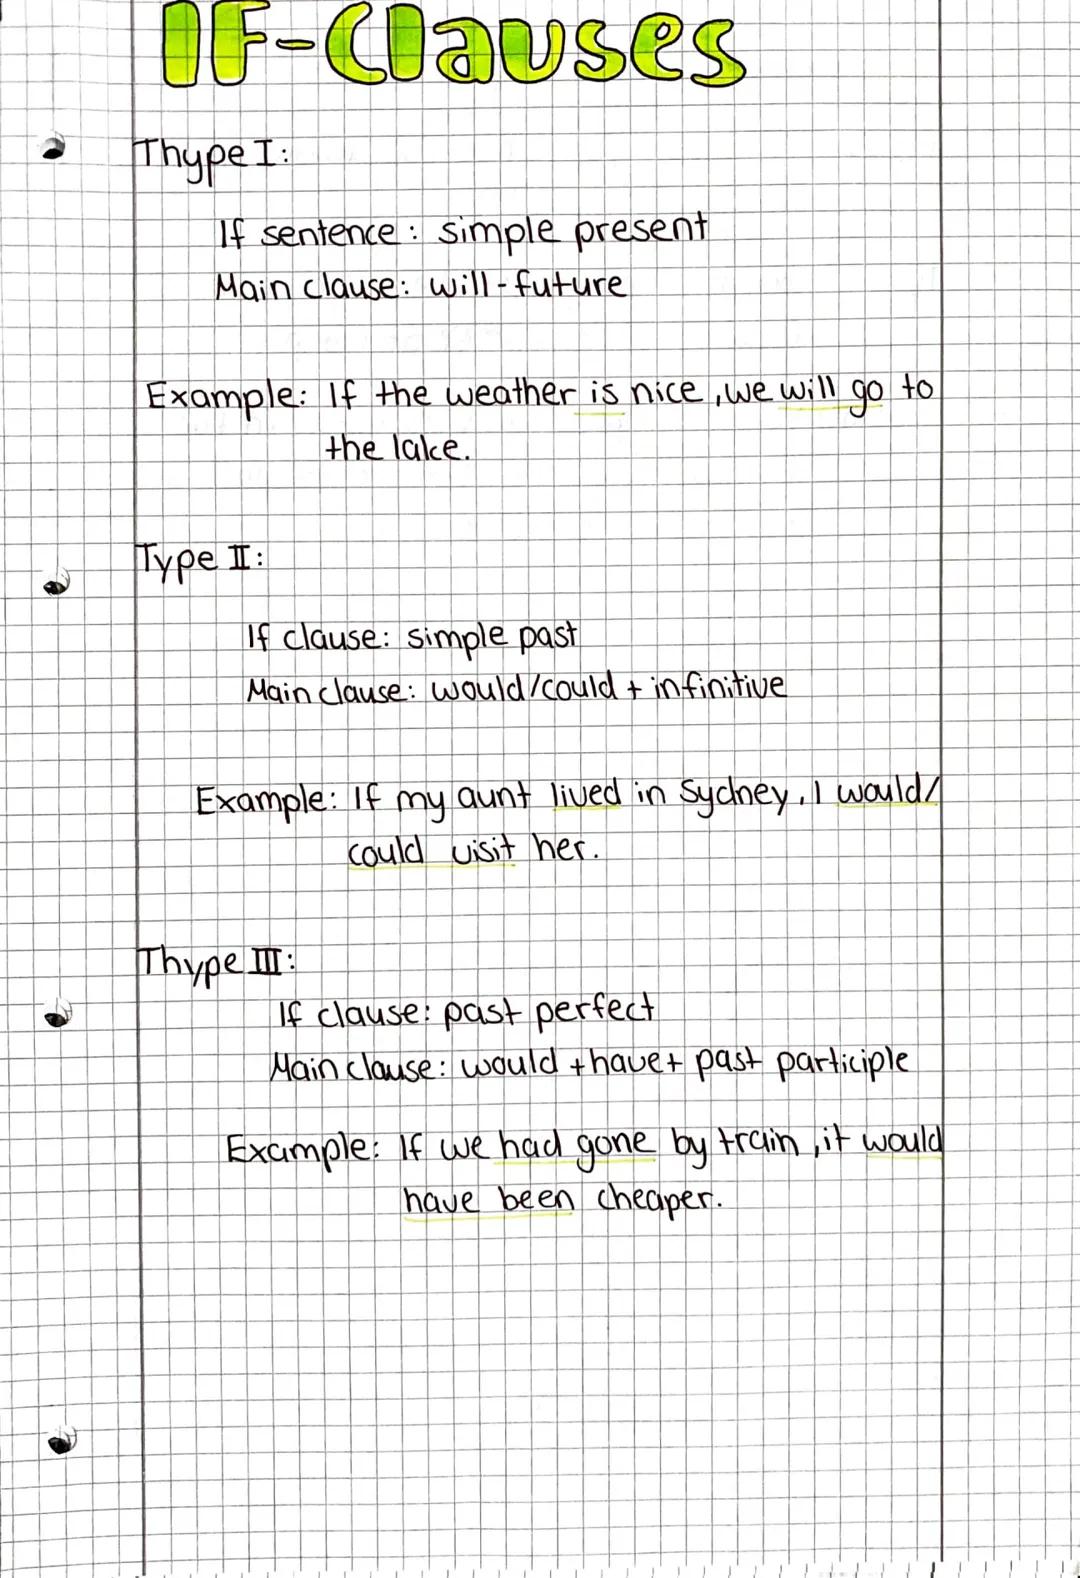 IF-Clauses
Thype I:
If sentence: simple present
Main clause: will-future
Example: If the weather is nice, we will go to
the lake.
Type II:
If clause: simple past
Main clause: would/could + infinitive
Example: If my aunt lived in Sydney, I would/
could visit her.
Thype III:
If clause: past perfect
Main clause: would + have + past participle
Example: If we had gone by train, it would
have been cheaper.